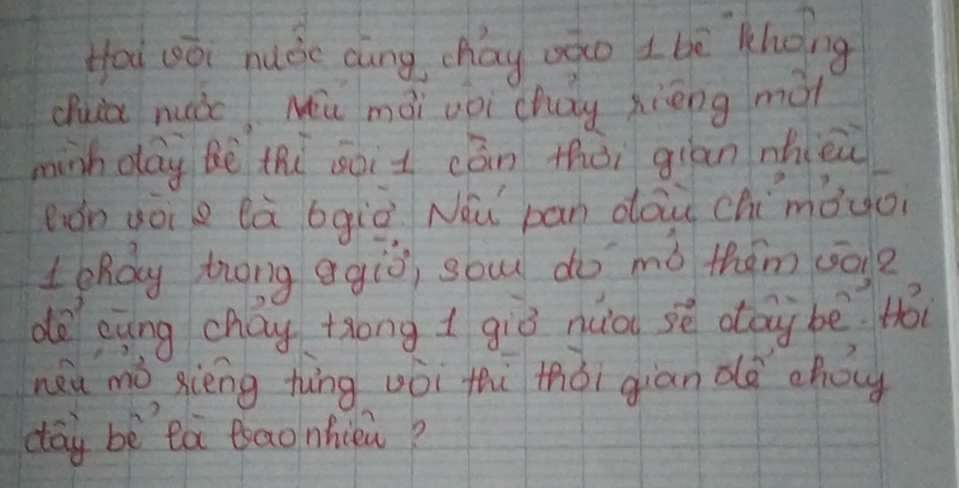 Hai vòi nước cùng chảy vào 1 bể không
chứa nước. Nếu mỗi vòi chảy riêng một
mình đầy bể thì vòi 1 cần thời gian nhiều
hơn vòi 2 là 6 giờ. Nếu ban đầu chỉ mở vòi
1 chảy trong giờ, sau đó mở thêm vòi 2
để cùng chảy trong 1 giờ nữa sẽ đầy bể. Hỏi
nếu mở riêng từng vòi thì thời gian để chảy
đầy bể là bao nhiêu?